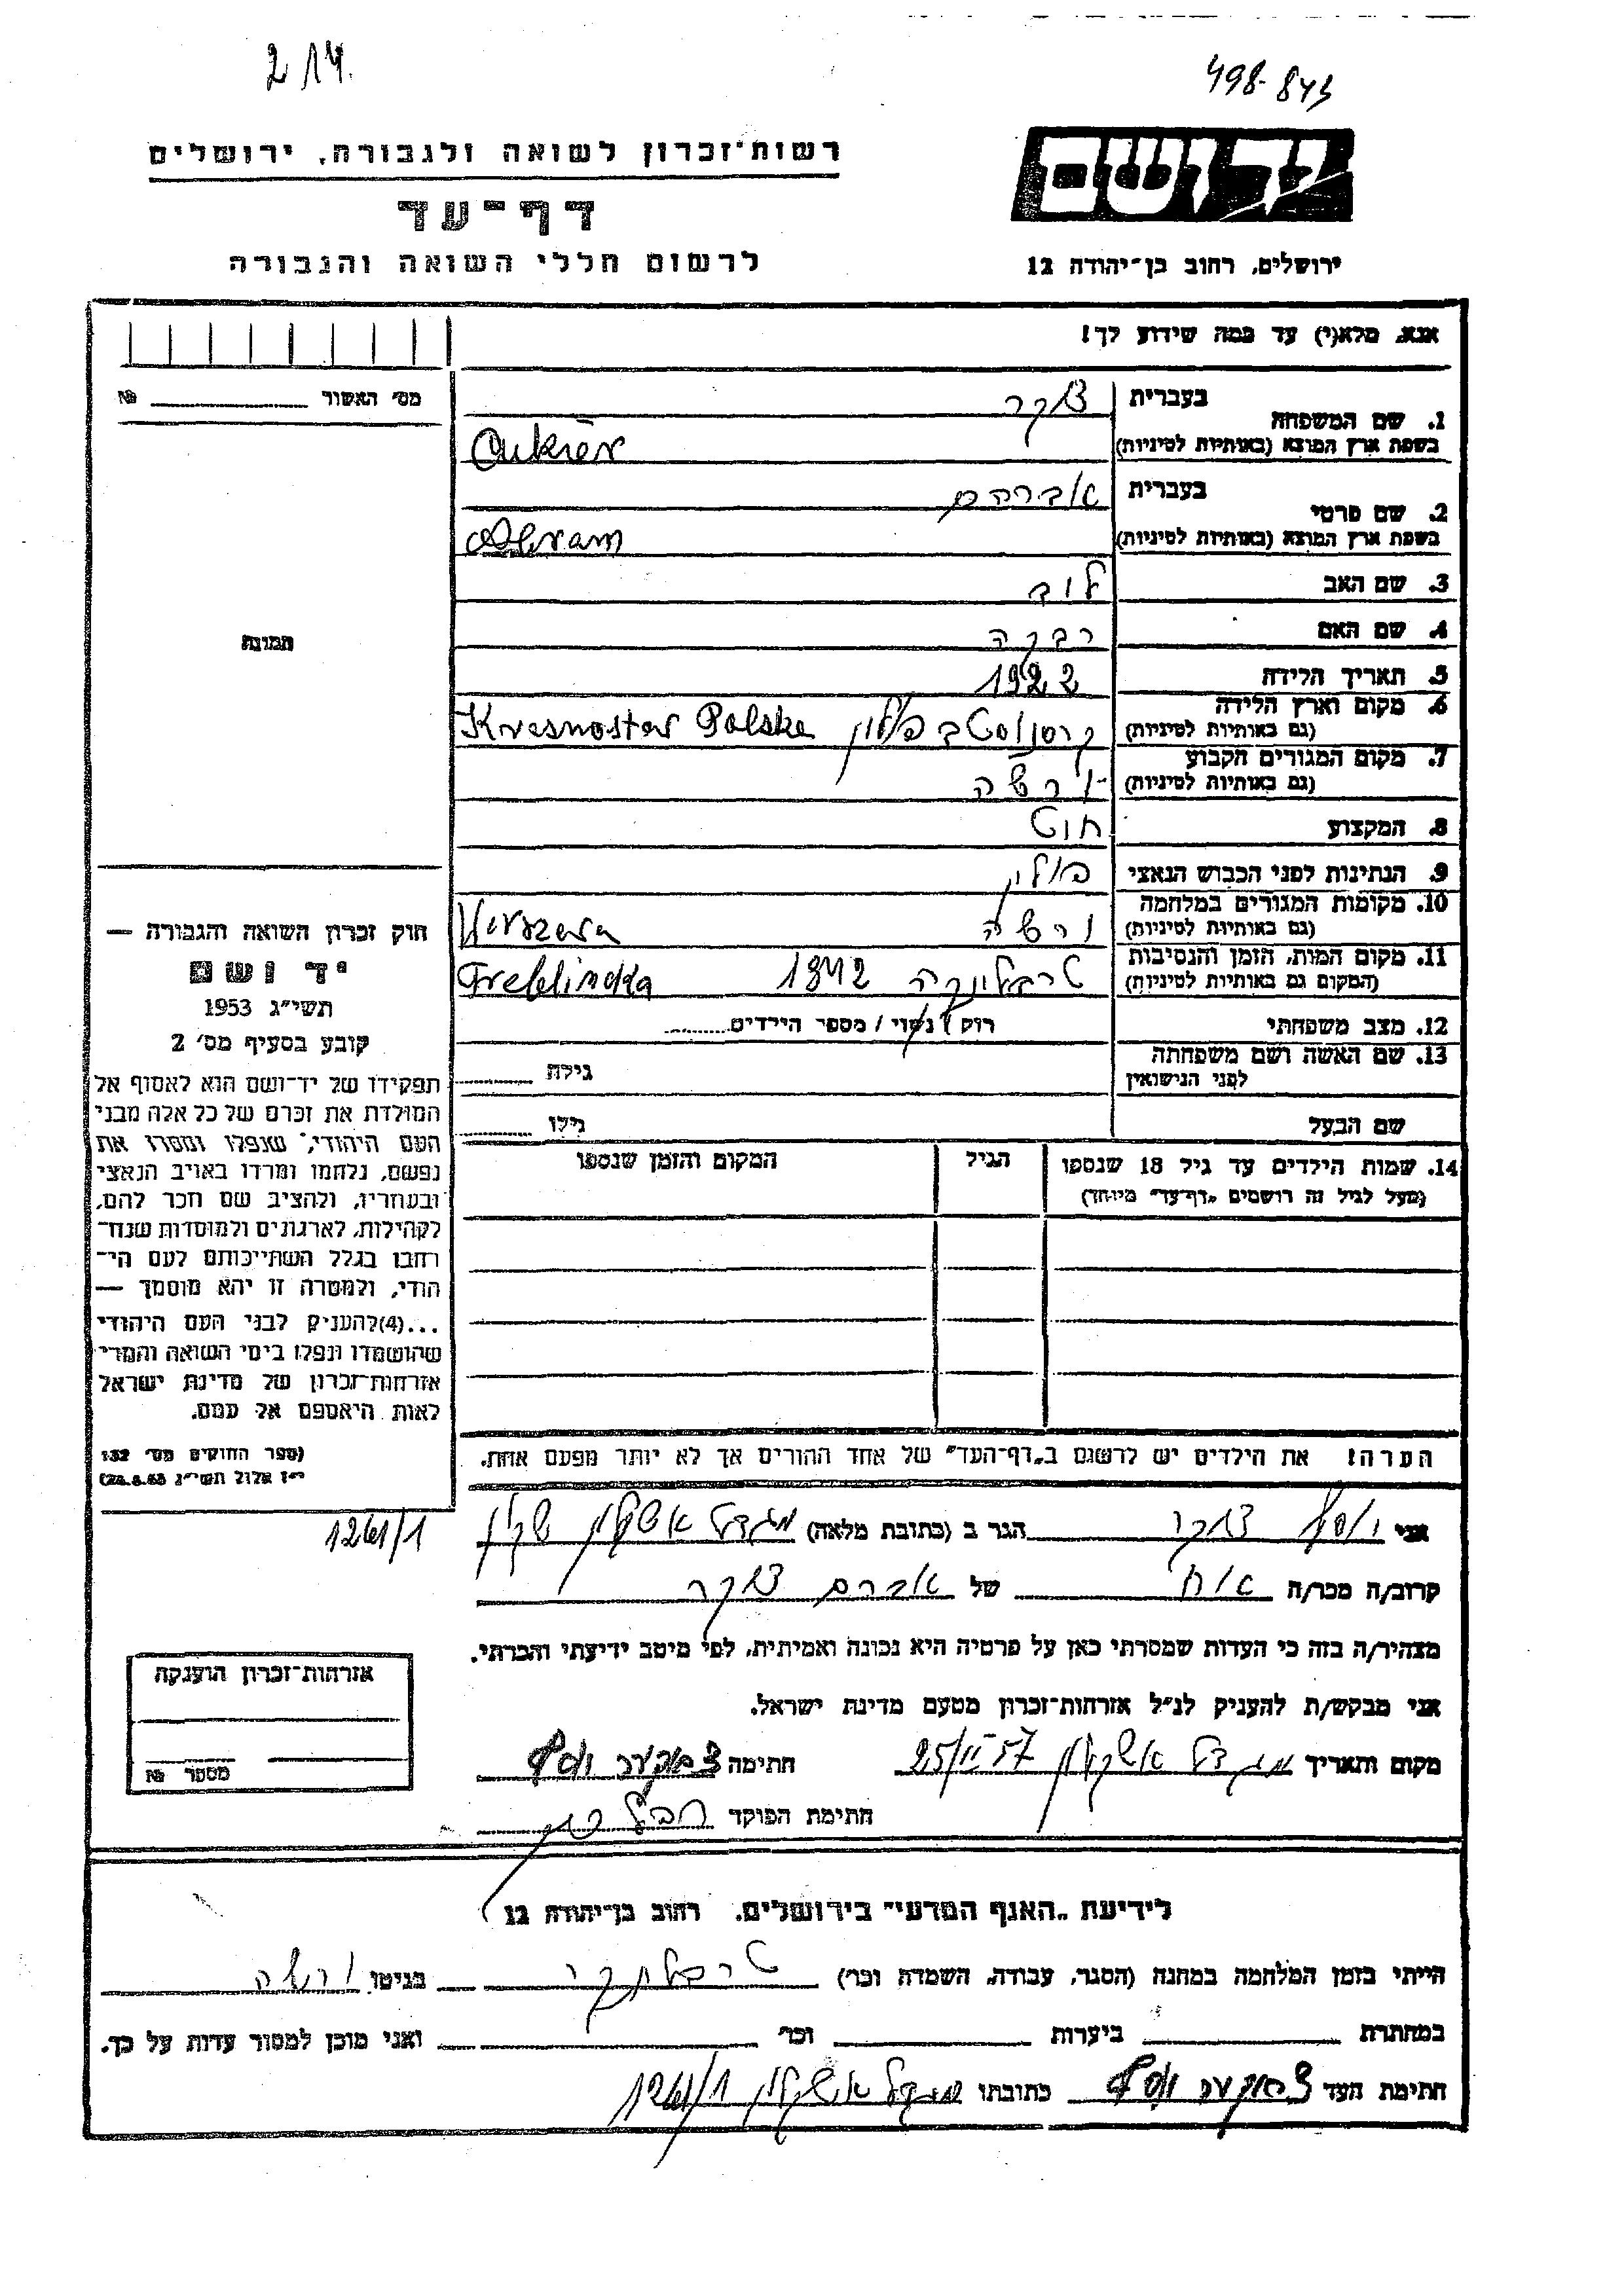 2 14.
498-843
רשות־זכרון לשואה ולגבורה, ירושלים
יד ושם
דף־עד
לרשום חללי השואה והגבורה
ירושלים, רחוב בן־יהודה 12
אנא, מלא(י) עד כמה שידוע לך!
מס׳ האשור № 
1. שם המשפחה בעברית צוקר
בשפת ארץ המוצא (באותיות לטיניות) Cukier
2. שם פרטי בעברית אברהם
בשפת ארץ המוצא (באותיות לטיניות) Abram
3. שם האב לוב
4. שם האם רבקה
5. תאריך הלידה 1922
6. מקום וארץ הלידה (גם באותיות לטיניות) קרסנוסטב פולין Kresnostav Polska
7. מקום המגורים הקבוע (גם באותיות לטיניות) ורשה
8. המקצוע
9. הנתינות לפני הכבוש הנאצי פולין
10. מקומות המגורים במלחמה (גם באותיות לטיניות) ורשה
11. מקום המות, הזמן והנסיבות (המקום גם באותיות לטיניות) טרבלינקה 1942 Treblindka
12. מצב משפחתי רווק / נשוי / מספר הילדים
13. שם האשה ושם משפחתה לפני הנישואין גילה
שם הבעל גילו
14. שמות הילדים עד גיל 18 שנספו הגיל המקום והזמן שנספו
(מעל לגיל זה רושמים „דף־עד״ מיוחד)
הערה! את הילדים יש לרשום ב„דף־העד״ של אחד ההורים אך לא יותר מפעם אחת.
תמונה
חוק זכרון השואה והגבורה —
יד ושם
תשי״ג 1953
קובע בסעיף מס׳ 2
תפקידו של יד־ושם הוא לאסוף אל
המולדת את זכרם של כל אלה מבני
העם היהודי, שנפלו ומסרו את
נפשם, נלחמו ומרדו באויב הנאצי
ובעוזריו, ולהציב שם וזכר להם,
לקהילות, לארגונים ולמוסדות שנח־
רבו בגלל השתייכותם לעם הי־
הודי, ולמטרה זו יהא מוסמך —
...(4)להעניק לבני העם היהודי
שהושמדו ונפלו בימי השואה והמרי
אזרחות־זכרון של מדינת ישראל
לאות היאספם אל עמם.
(ספר החוקים מס׳ 132
י״ז אלול תשי״ג (28.8.53
1261/1
אני יוסף צוקר הגר ב (כתובת מלאה) מגדל אשקלון
קרוב/ה מכר/ה אח של אברם צוקר
מצהיר/ה בזה כי העדות שמסרתי כאן על פרטיה היא נכונה ואמיתית, לפי מיטב ידיעתי והכרתי.
אני מבקש/ת להעניק לנ״ל אזרחות־זכרון מטעם מדינת ישראל.
מקום ותאריך מגדל אשקלון 25/II 57 חתימה צוקער יוסף
חתימת הפוקד
אזרחות־זכרון הוענקה
מספר №
לידיעת „האגף המדעי״ בירושלים, רחוב בן־יהודה 12
הייתי בזמן המלחמה במחנה (הסגר, עבודה, השמדה וכו׳) בגיטו ורשה
במחתרת ביערות וכו׳ ואני מוכן למסור עדות על כך.
חתימת העד צוקער יוסף כתובתו מגדל אשקלון 1261/1